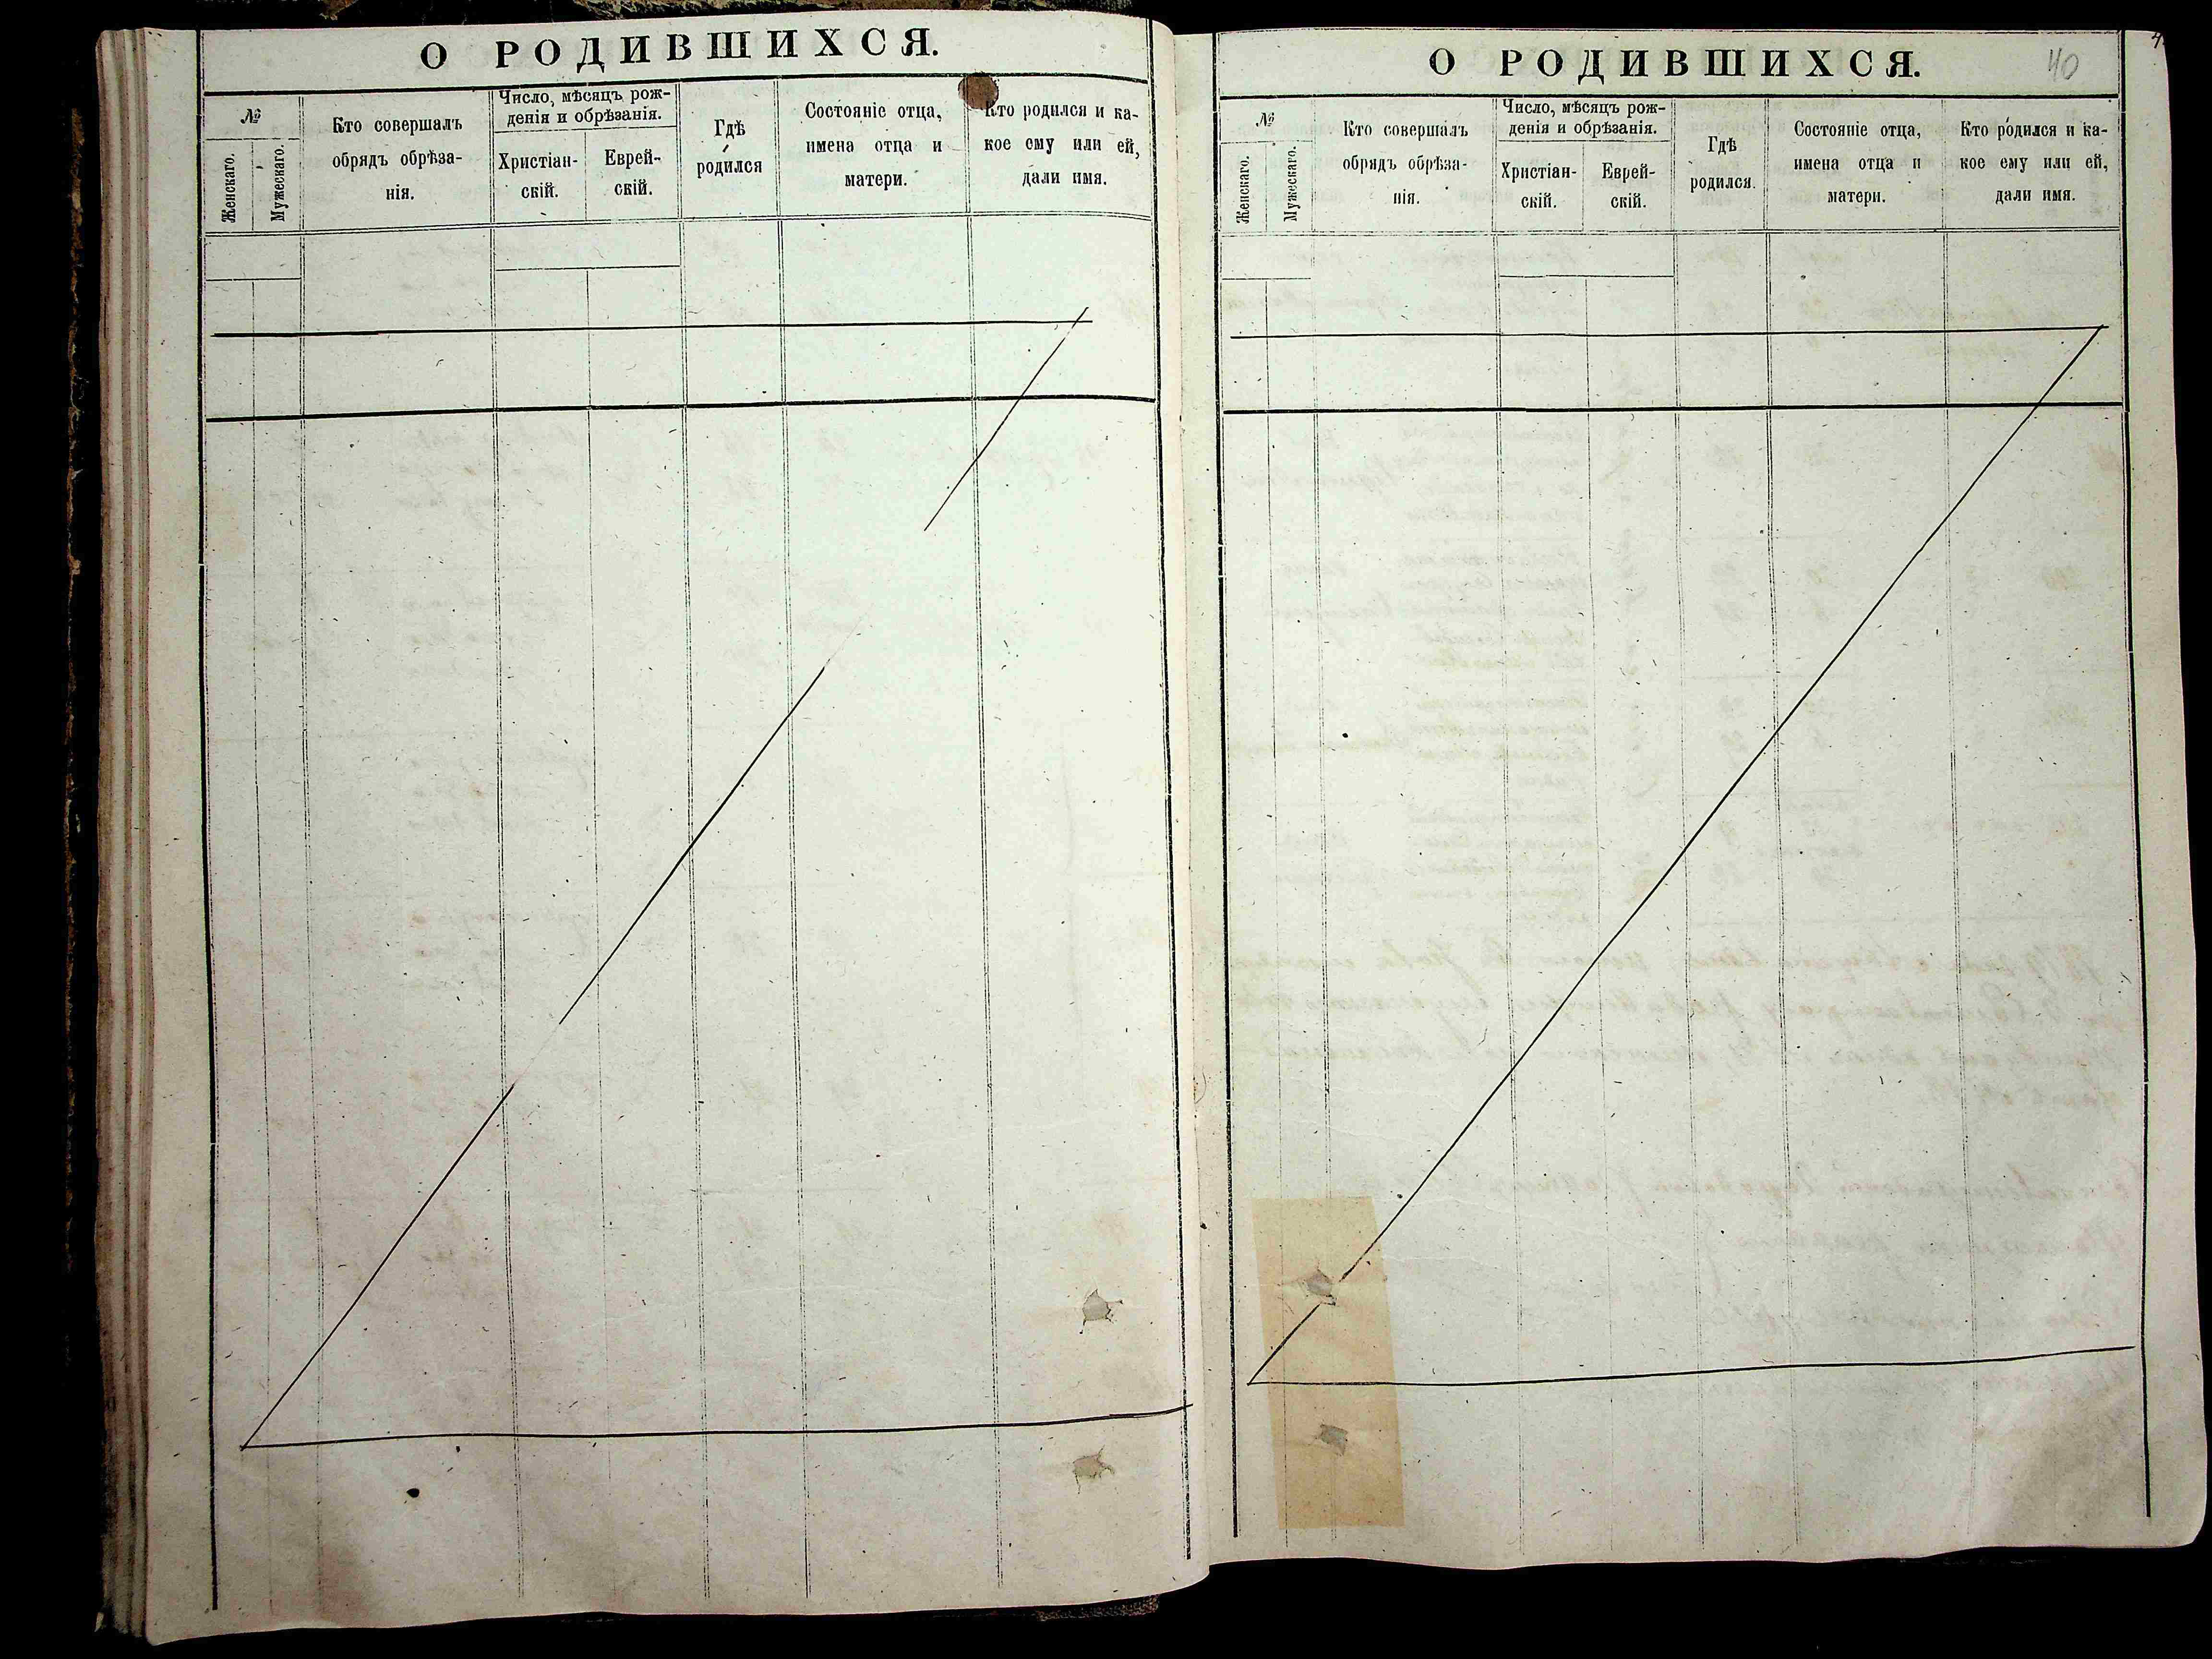 О РОДИВШИХСЯ.
№
Женскаго.
Мужескаго.
Кто совершалъ
обрядъ обрѣза-
нія.
Число, мѣсяцъ рож-
денія и обрѣзанія.
Христіан-
скій.
Еврей-
скій.
Гдѣ
родился
Состояніе отца,
имена отца и
матери.
Кто родился и ка-
кое ему или ей,
дали имя.
О РОДИВШИХСЯ.
40
№
Женскаго.
Мужескаго.
Кто совершалъ
обрядъ обрѣза-
нія.
Число, мѣсяцъ рож-
денія и обрѣзанія.
Христіан-
скій.
Еврей-
скій.
Гдѣ
родился.
Состояніе отца,
имена отца и
матери.
Кто родился и ка-
кое ему или ей,
дали имя.